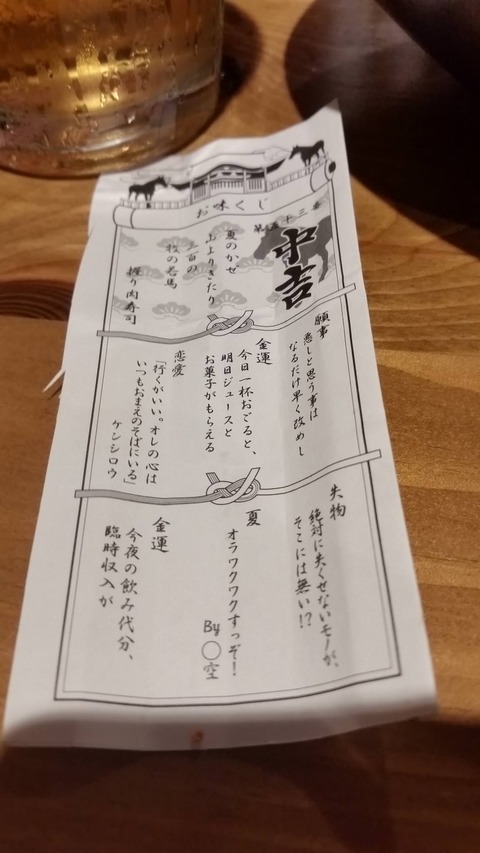 お味くじ
第五十三番
中吉
夏のかぜ
山よりきたり
三百の
牧の若馬
握り肉寿司
願事
悪しと思う事は
なるだけ早く改めし
金運
今日一杯おごると、
明日ジュースと
お菓子がもらえる
恋愛
「行くがいい。オレの心は
いつもおまえのそばにいる」
ケンシロウ
失物
絶対に失くせないモノが、
そこには無い!?
夏
オラワクワクすっぞ!
By〇空
金運
今夜の飲み代分、
臨時収入が